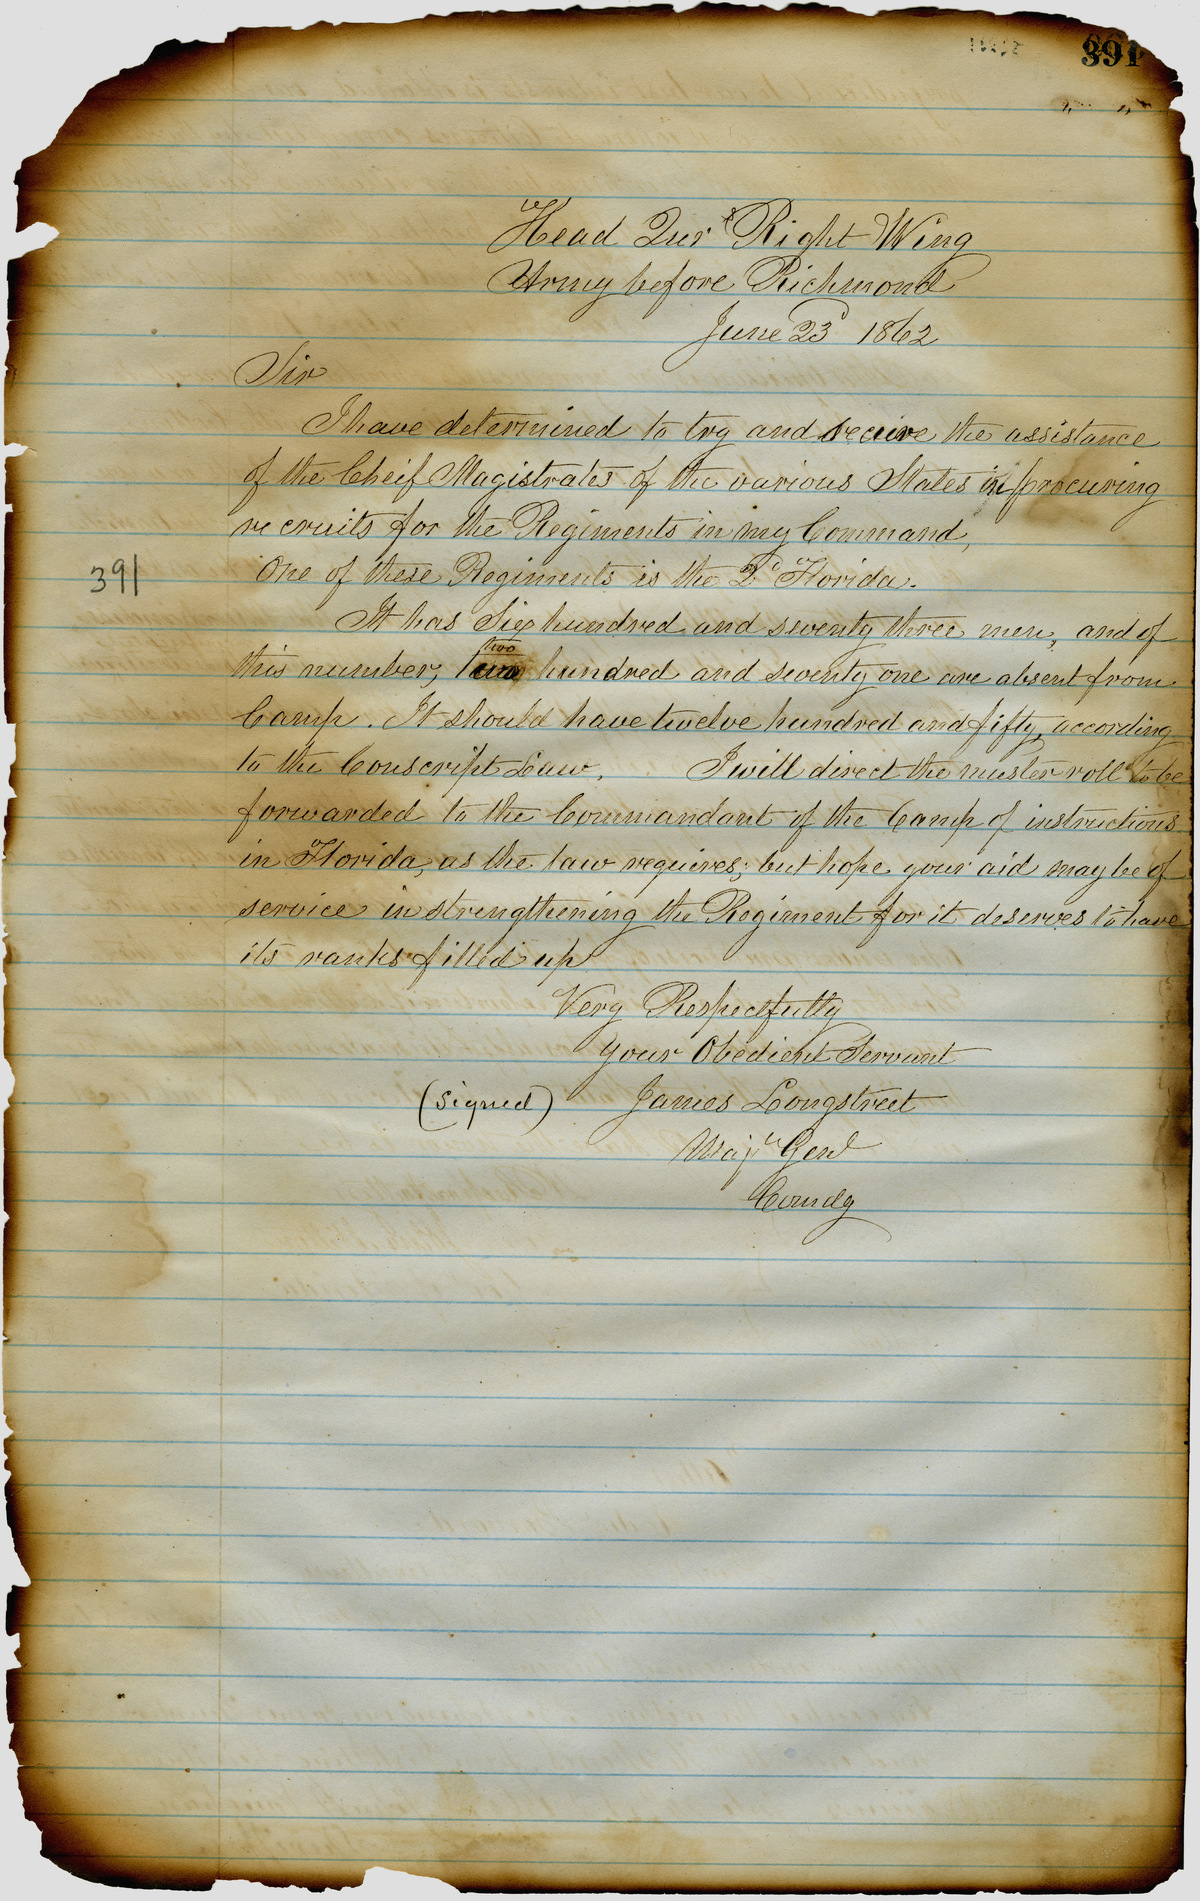 391
Head Qurs Right Wing
Army before Richmond
June 23d 1862
Sir
I have determined to try and secure the assistance
of the Cheif Magistrates of the various States in procuring
recruits for the Regiments in my Command,
One of these Regiments is the 2d Florida.
391
It has Six hundred and seventy three men, and of
this number, two hundred and seventy one are absent from
Camp. It should have twelve hundred and fifty, according
to the Conscript Law. I will direct the muster roll to be
forwarded to the Commandant of the Camp of instructions
in Florida, as the law requires; but hope your aid may be of
service in strengthening the Regiment for it deserves to have
its ranks filled up
Very Respectfully
your Obedient Servant
(signed) James Longstreet
Majr Genl
Comdg